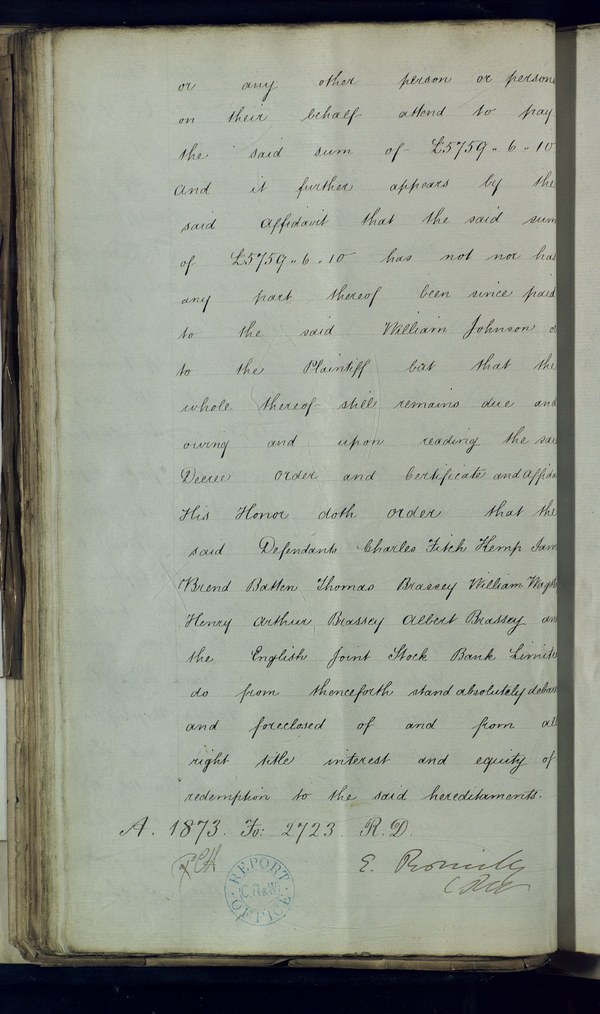 or any other person or persons
on their behalf attend to pay
the said sum of £5759 " 6 " 10
And it further appears by the
said Affidavit that the said sum
of £5759 " 6 " 10 has not nor ha
any part thereof been since paid
to the said William Johnson o
to the Plaintiff but that the
whole thereof still remains due and
owing and upon reading the sai
Decree Order and Certificate and Affida
His Honor doth order that the
said Defendants Charles Fitch Kemp Jam
Brend Batten Thomas Brassey William Wags
Henry Arthur Brassey Albert Brassey an
the English Joint Stock Bank Limite
do from thenceforth stand absolutely debar
and foreclosed of and from all
right title interest and equity of
redemption to the said hereditaments.
A. 1873. Fo: 2723. R.D.
E. Romilly
REPORT
OFFICE